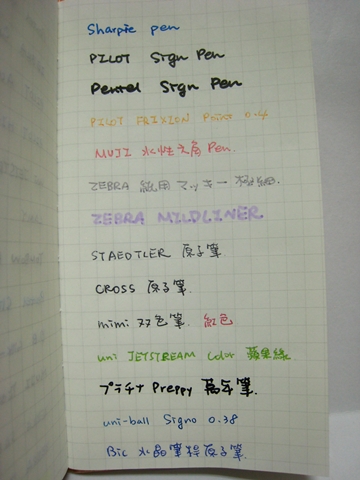 Sharpie pen
PILOT Sign Pen
Pentel Sign Pen
PILOT FRIXION Point 0.4
MUJI 水性六角 Pen.
ZEBRA 紙用マッキー 極細.
ZEBRA MILDLINER.
STAEDTLER 原子筆.
CROSS 原子筆.
mimi 双色筆. 紅色
uni JETSTREAM Color 蘋果綠.
プラチナ Preppy 萬年筆.
uni-ball Signo 0.38
Bic 水晶筆桿原子筆.